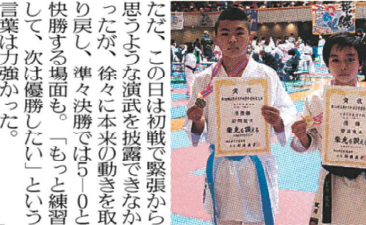 ただ、この日は初戦で緊張から
思うような演武を披露できなか
ったが、徐々に本来の動きを取
り戻し、準々決勝では5-0と
快勝する場面も。「もっと練習
して、次は優勝したい」という
言葉は力強かった。
賞状
賞状